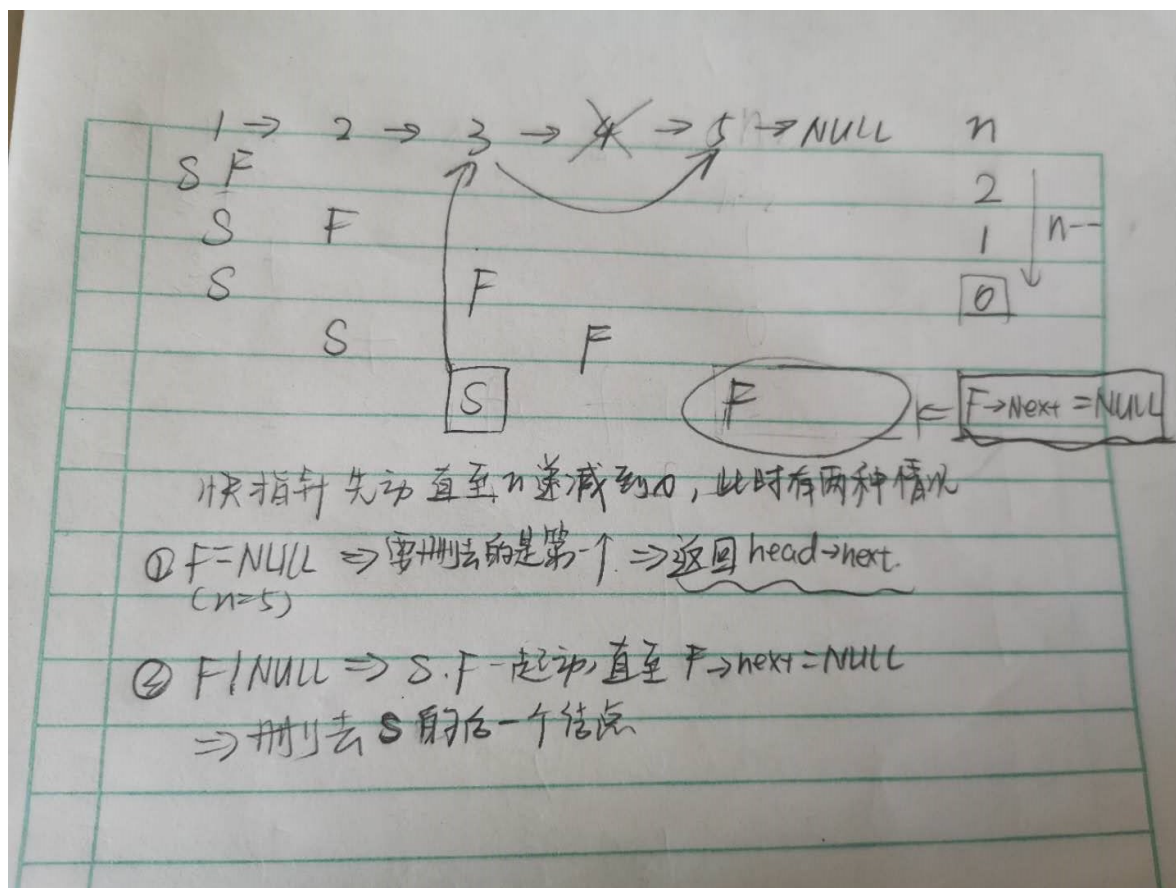 1 → 2 → 3 → 4 → 5 → NULL n
S F 2
S F 1 n--
S F 0
S F
S F ⇐ F→Next=NULL
快指针先动直至n递减到0,此时有两种情况
① F=NULL ⇒ 要删去的是第一个 ⇒ 返回head→next.
(n=5)
② F!NULL ⇒ S.F一起动,直至 F→next=NULL
⇒ 删去 S 的后一个结点